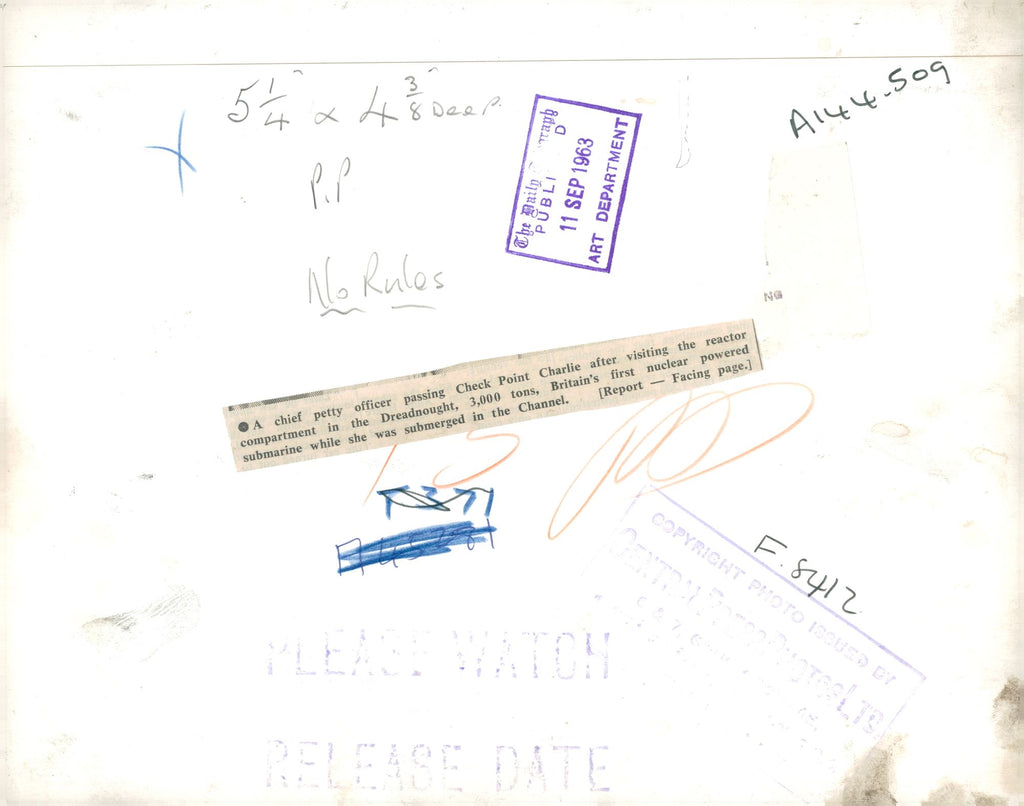 5 1/4" x 4 3/8" Deep.
A144-509
P.P
The Daily
11 SEP 1963
ART DEPARTMENT
No Rules
NG
● A chief petty officer passing Check Point Charlie after visiting the reactor
compartment in the Dreadnought, 3,000 tons, Britain's first nuclear powered
submarine while she was submerged in the Channel. [Report — Facing page.]
COPYRIGHT PHOTO ISSUED BY
LTD
F.8412
PLEASE WATCH
RELEASE DATE